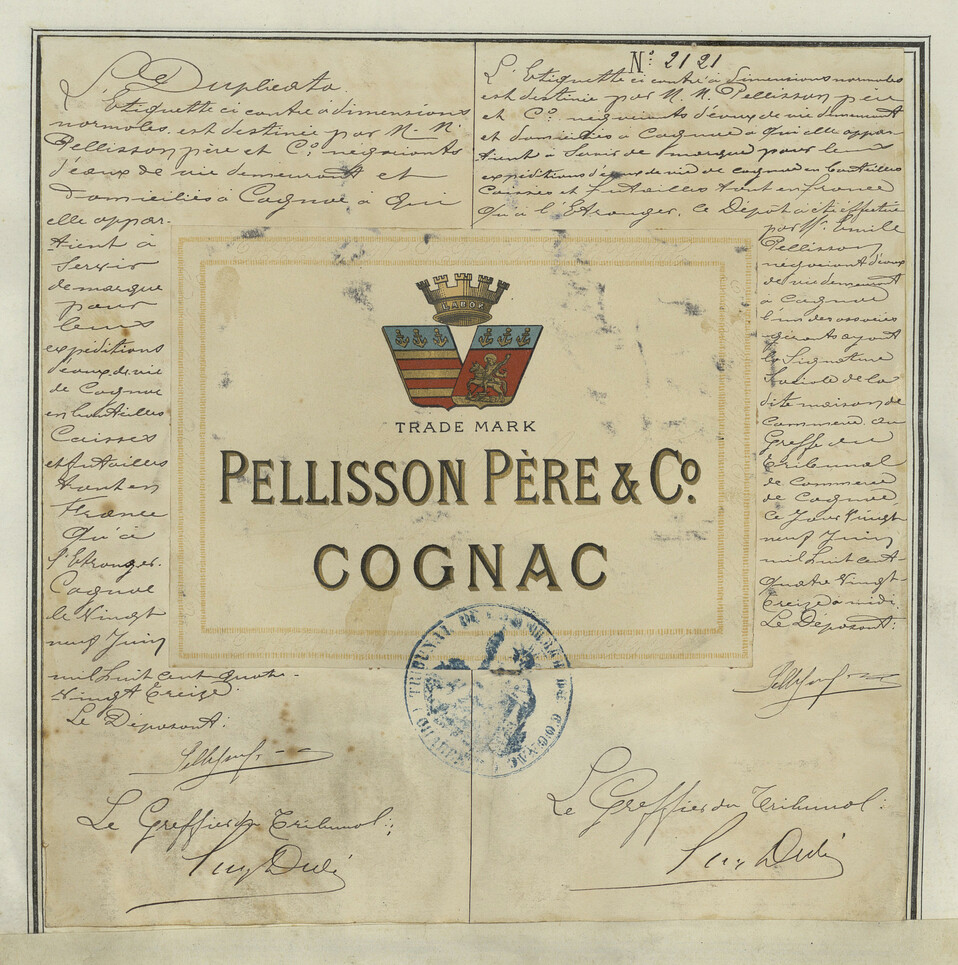 Duplicata.
L'Etiquette ci contre à dimensions
normales est destinée par M. M.
Pellisson père et Co. négociants
d'eaux de vie demeurant et
domiciliés à Cognac à qui
elle appar-
tient à
servir
de marque
pour
leurs
expéditions
d'eaux de vie
de Cognac
en bouteilles
Caisses
et futailles
tant en
France
qu'à
l'Etranger.
Cognac
le Vingt
neuf Juin
mil huit cent quatre-
Vingt treize.
Le Déposant:
Le Greffier du Tribunal:
No. 2121
L'Etiquette ci contre à dimensions normales
est destinée par M. M. Pellisson père
et Co. négociants d'eaux de vie demeurant
et domiciliés à Cognac à qui elle appar
tient à servir de marque pour leurs
expéditions d'eaux de vie de cognac en bouteilles
Caisses et futailles tant en France
qu'à l'Etranger. Ce Dépôt a été effectué
par M. Emile
Pellisson
négociant d'eaux
de vie demeurant
à Cognac
l'un des associés
gérants ayant
la Signature
Sociale de la
dite maison de
Commerce au
Greffe du
Tribunal
de Commerce
de Cognac
ce Jour Vingt
neuf Juin
mil huit cent
quatre Vingt
treize à midi.
Le Déposant:
Le Greffier du Tribunal:
LABOR
TRADE MARK
PELLISSON PÈRE & Co.
COGNAC
TRIBUNAL DE COMMERCE DE COGNAC